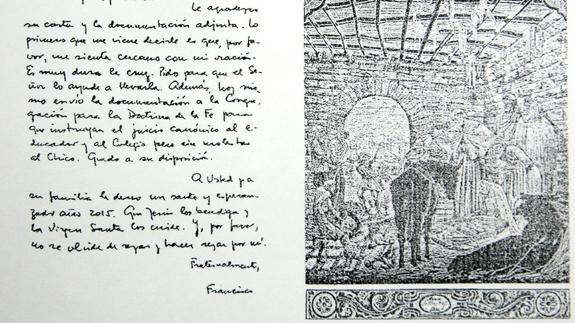 Le agradezco
su carta y la documentación adjunta. Lo
primero que me viene decirle es que, por fa-
vor, me sienta cercano con mi oración.
Es muy dura la cruz. Pido para que el Se-
ñor lo ayude a llevarla. Además, hoy mis-
mo envío la documentación a la Congre-
gación para la Doctrina de la Fe para
que instruyan el juicio canónico al e-
ducador y al Colegio pero sin molestar
al Chico. Quedo a su disposición.
A Usted y a
su familia le deseo un santo y esperan-
zador año 2015. Que Jesús los bendiga y
la Virgen Santa los cuide. Y, por favor,
no se olvide de rezar y hacer rezar por mí.
Fraternalmente,
Francisco